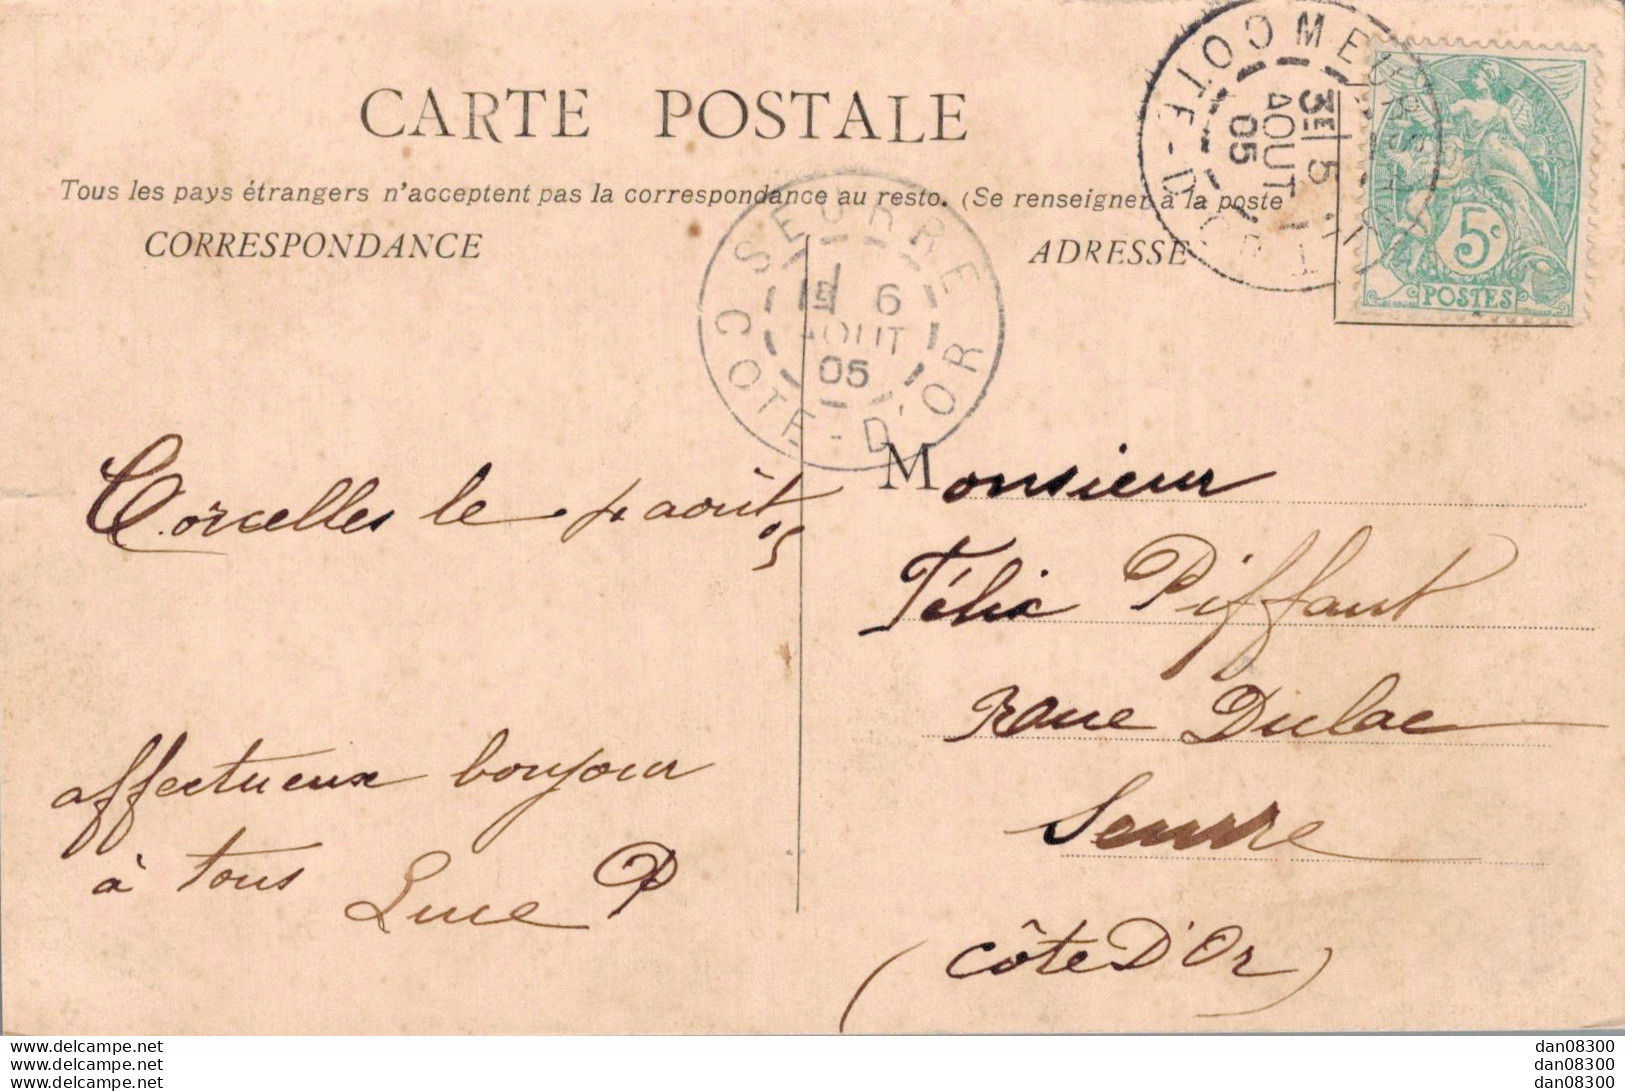 CARTE POSTALE
Tous les pays étrangers n'acceptent pas la correspondance au resto. (Se renseigner à la poste
CORRESPONDANCE
ADRESSE
3E 5
AOUT
05
COTE-D'OR
5c
POSTES
SEURRE
1E 6
AOUT
05
COTE-D'OR
Corcelles le 4 août
05
affectueux bonjour
à tous
Luce P
Monsieur
Félix Piffaut
Rue Dulac
Seurre
(Côte D'Or)
www.delcampe.net
www.delcampe.net
www.delcampe.net
dan08300
dan08300
dan08300